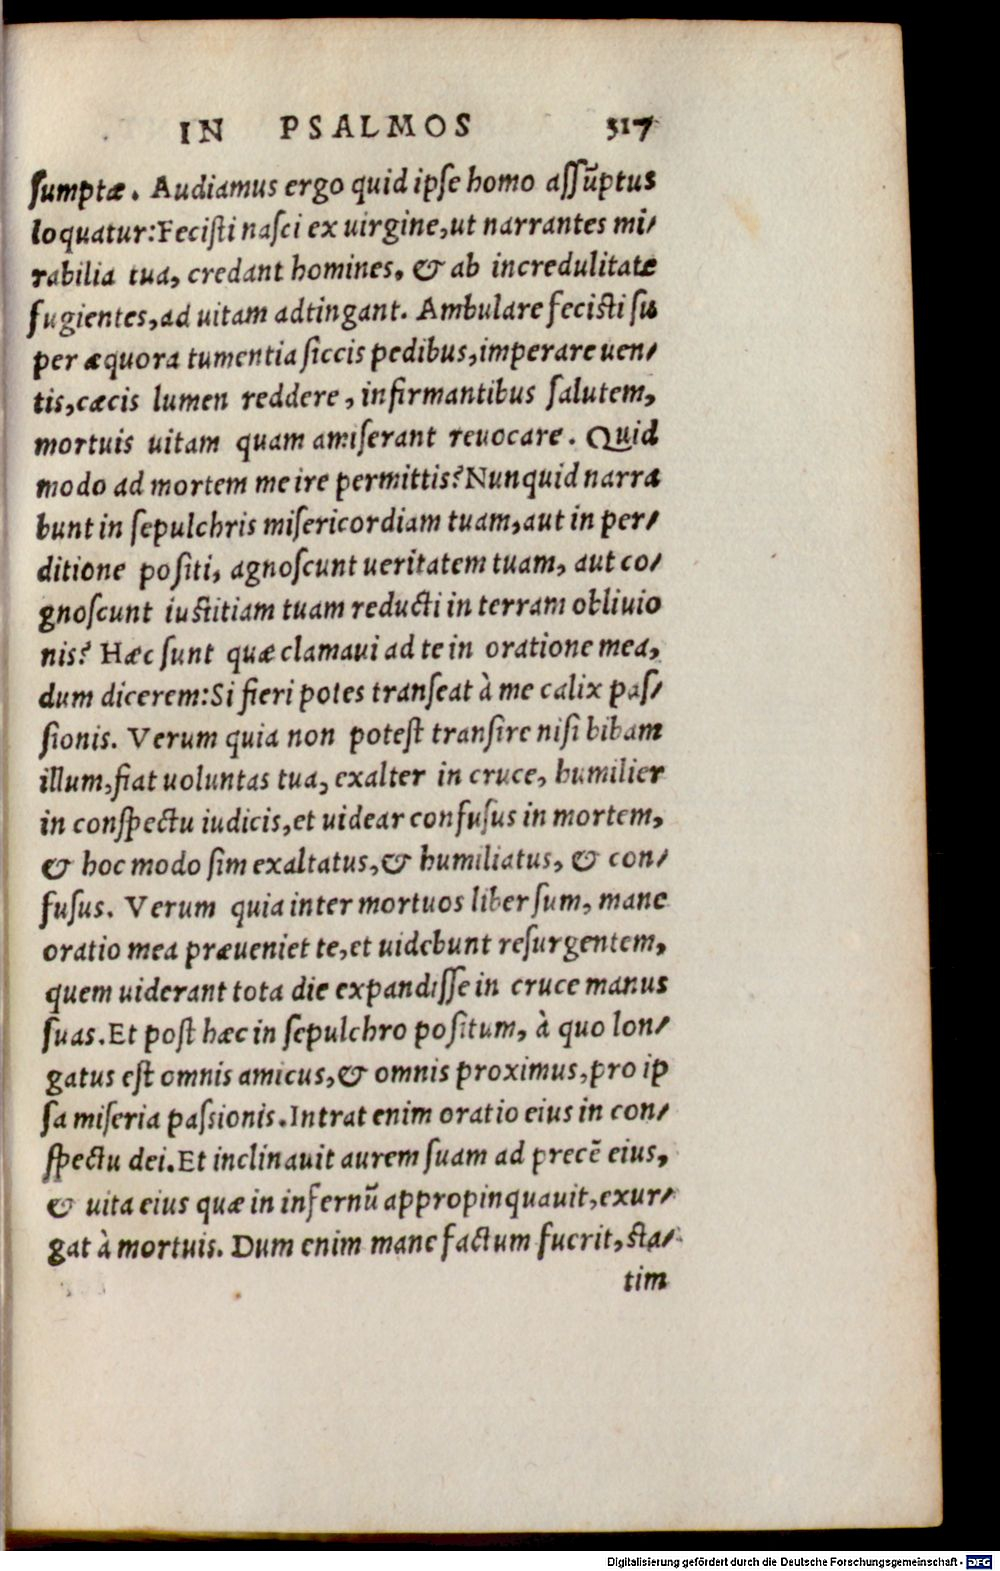 IN PSALMOS 317
sumptæ. Audiamus ergo quid ipse homo assũptus
loquatur:Fecisti nasci ex uirgine,ut narrantes mi-
rabilia tua, credant homines, & ab incredulitate
fugientes,ad uitam adtingant. Ambulare fecisti su
per æquora tumentia siccis pedibus,imperare uen-
tis,cæcis lumen reddere, infirmantibus salutem,
mortuis uitam quam amiserant reuocare. Quid
modo ad mortem me ire permittis? Nunquid narra
bunt in sepulchris misericordiam tuam,aut in per-
ditione positi, agnoscunt ueritatem tuam, aut co-
gnoscunt iustitiam tuam reducti in terram obliuio
nis? Hæc sunt quæ clamaui ad te in oratione mea,
dum dicerem:Si fieri potes transeat à me calix pas-
sionis. Verum quia non potest transire nisi bibam
illum,fiat uoluntas tua, exalter in cruce, humilier
in conspectu iudicis,et uidear confusus in mortem,
& hoc modo sim exaltatus,& humiliatus, & con-
fusus. Verum quia inter mortuos liber sum, mane
oratio mea præueniet te,et uidebunt resurgentem,
quem uiderant tota die expandisse in cruce manus
suas.Et post hæc in sepulchro positum, à quo lon-
gatus est omnis amicus,& omnis proximus,pro ip
sa miseria passionis.Intrat enim oratio eius in con-
spectu dei.Et inclinauit aurem suam ad precẽ eius,
& uita eius quæ in infernũ appropinquauit,exur-
gat à mortuis. Dum enim mane factum fuerit,sta-
tim
Digitalisierung gefördert durch die Deutsche Forschungsgemeinschaft - DFG